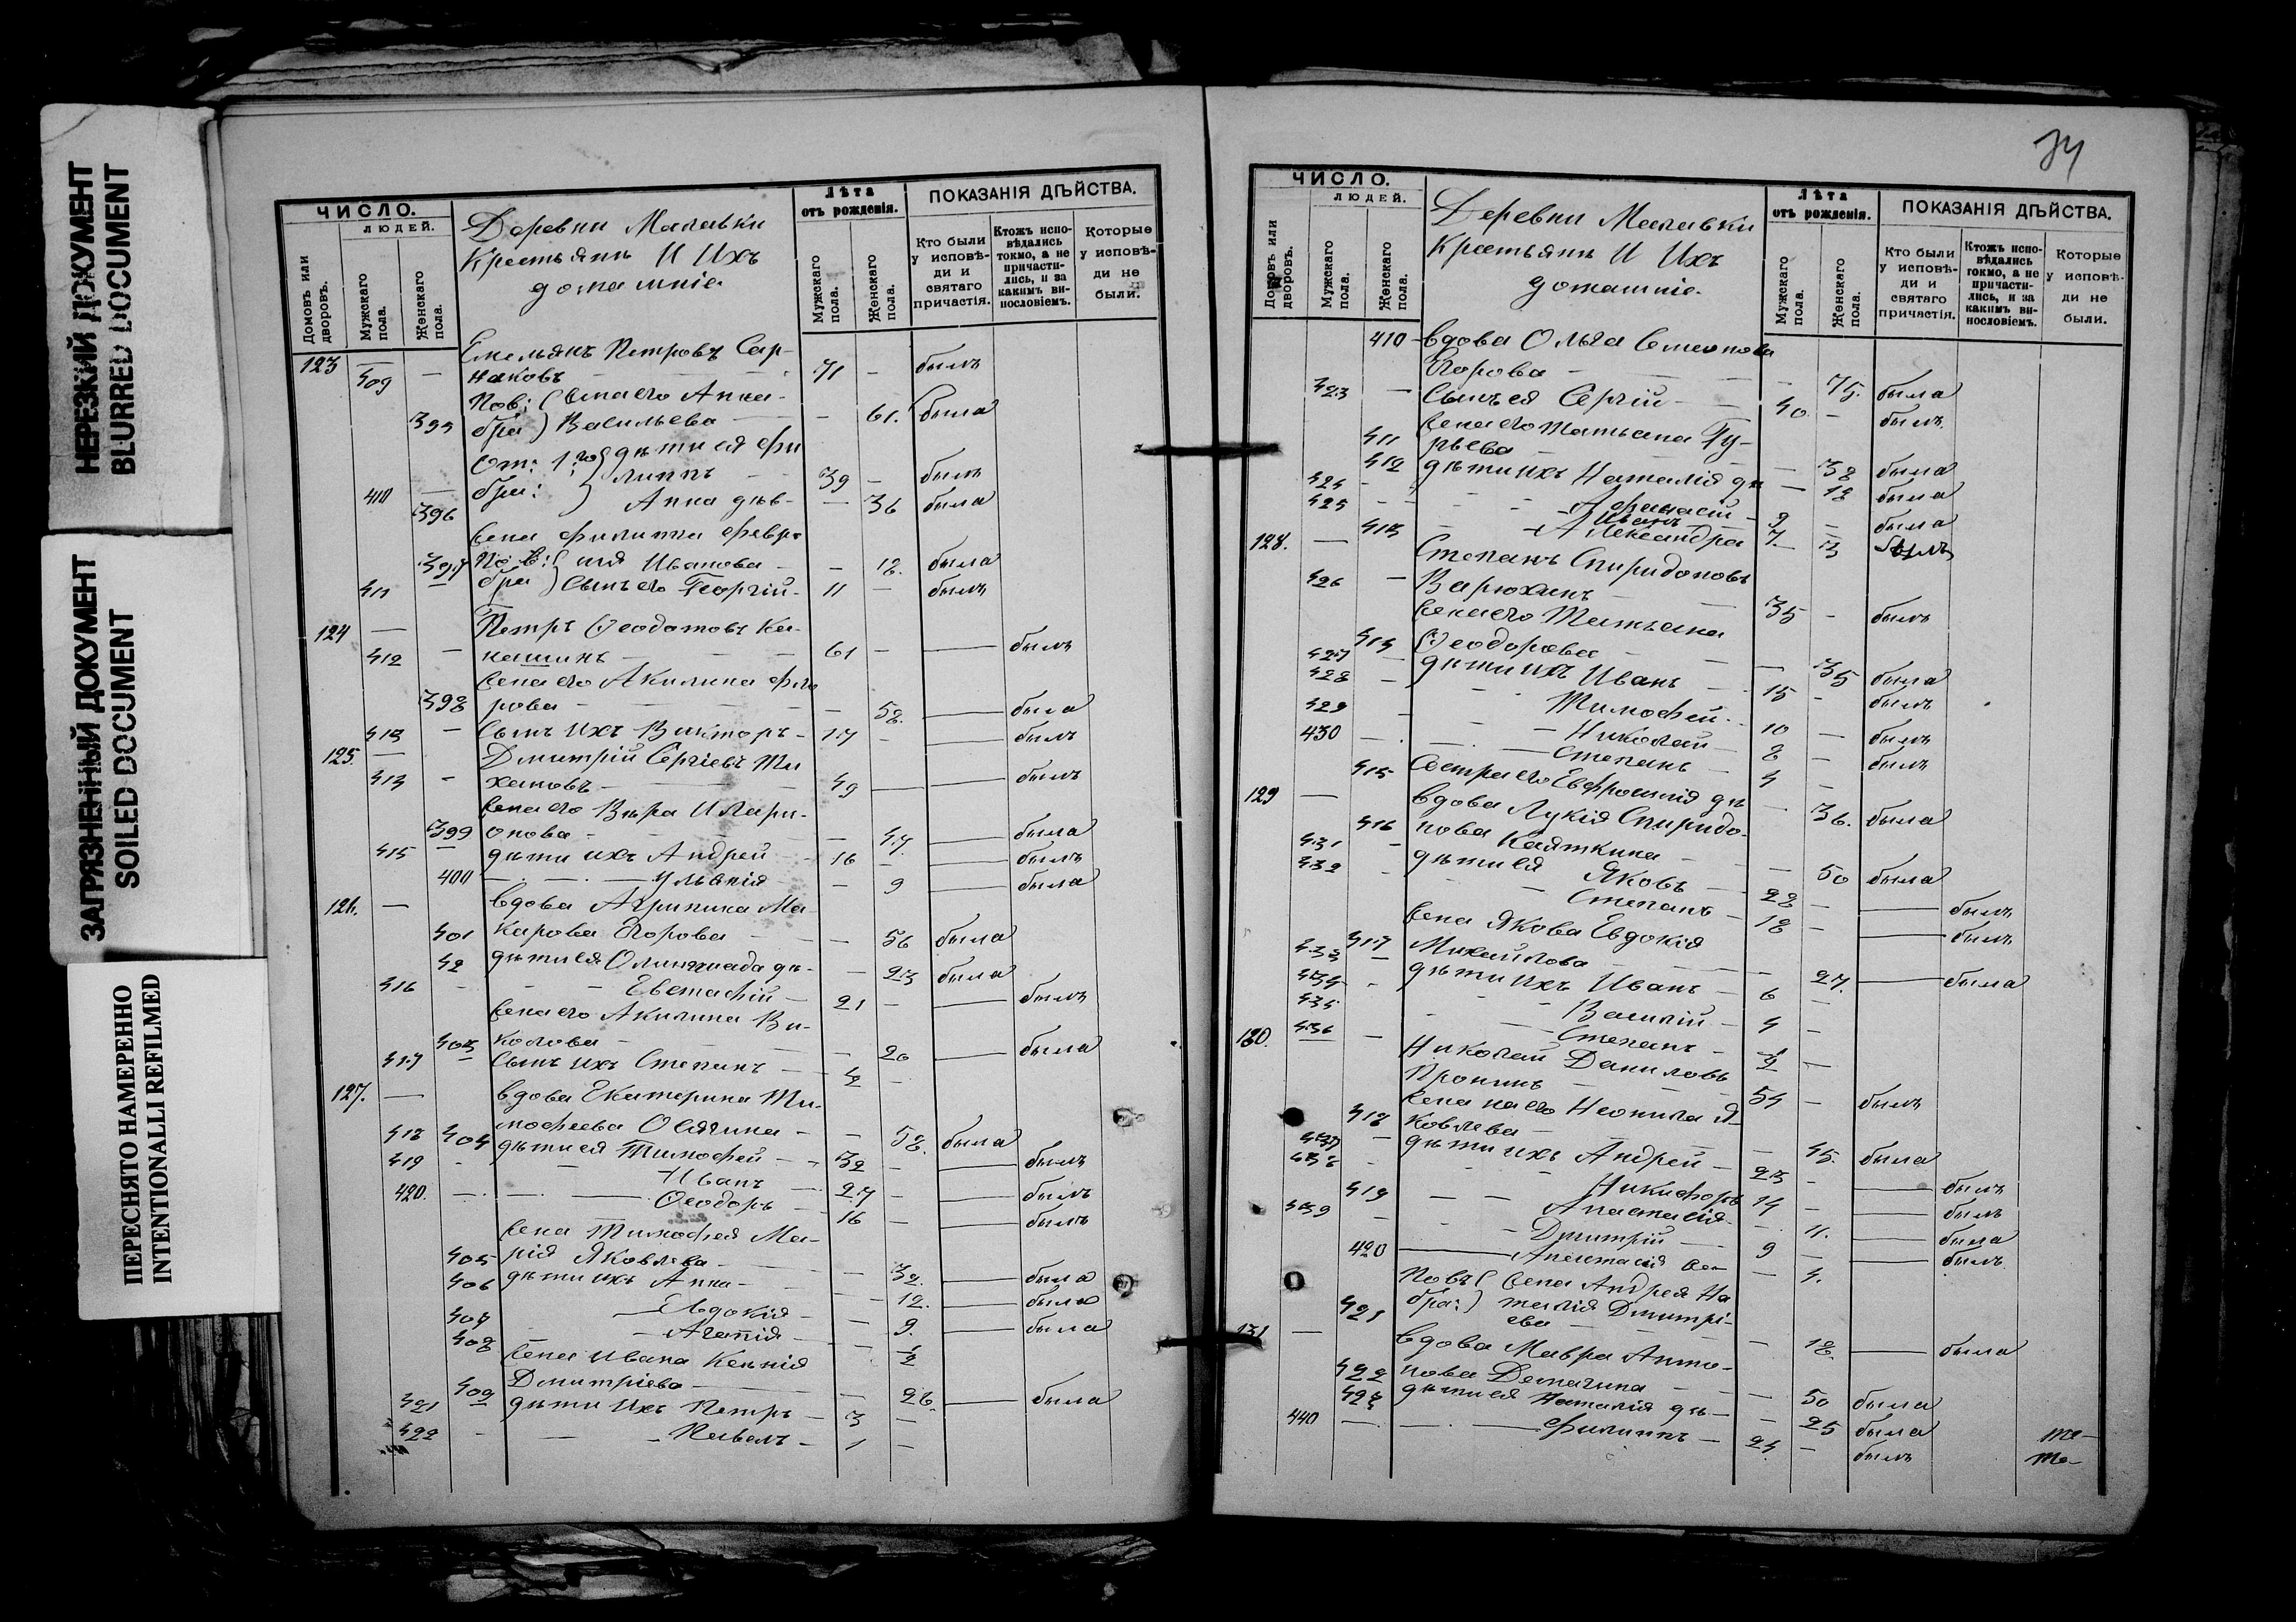 НЕРЕЗКИЙ ДОКУМЕНТ
BLURRED DOCUMENT
ЗАГРЯЗНЕННЫЙ ДОКУМЕНТ
SOILED DOCUMENT
ПЕРЕСНЯТО НАМЕРЕННО
INTENTIONALLI REFILMED
ЧИСЛО.
ЛЮДЕЙ.
Домовъ или дворовъ.
Мужскаго пола.
Женскаго пола.
Деревни Малавки
Крестьяне И Ихъ
домашніе
Лѣта
отъ рожденія.
Мужскаго пола.
Женскаго пола.
ПОКАЗАНІЯ ДѢЙСТВА.
Кто были у исповѣди и святаго причастія.
Ктожъ исповѣдались токмо, а не причастились, и за какимъ винословіемъ.
Которые у исповѣди не были.
123 — — Емельянъ Петровъ Сар-
409 наковъ 71 - былъ
Пов: жена его Анна
395 бра Васильева — 61. была
От: 1го дѣти ея Фи
410 — бра: липпъ 39 - былъ
396 Анна дѣв- — 36 была
жена Филиппа Февро
397 По в: нія Иванова - 18. была
411 — бра Сынъ его Георгій - 11 - былъ
124 — Петръ Ѳеодотовъ Ка-
412 — кашинъ 61 - — былъ
жена его Акилина Фло
398 рова - — 58. — была
413 - Сынъ ихъ Викторъ - 17 - — былъ
125. — Дмитрій Сергіевъ Ти
414 - хановъ 49 — — былъ
жена его Вѣра Илари-
399 онова - — 47. — была
415 дѣти ихъ Андрей 16 - — былъ
400 — Ульянія - 9 — была
126. — вдова Агрипина Ма-
401 карова Егорова — 56 была
42 дѣти ея Олимпиада дѣ- — 23 была
416 - Евстафій 21 - — былъ
жена его Акилина Ви-
403 колова — 20 — была
417 - Сынъ ихъ Степанъ 4 -
127. — вдова Екатерина Ти-
404 мофеева Осягина - — 58. была
418 дѣти ея Тимофей — 32 - — былъ
419 - Иванъ 27 - — былъ
420. — Ѳеодоръ 16 - — былъ
жена Тимофея Ма-
405 рія Яковлева — 32. — была
406 дѣти ихъ Анна - — 12. — была
407 — Евдокія — 9. — была
408 - Агапія — 1/2
жена Ивана Ксенія
409 Дмитріева — 26. — была
421 дѣти ихъ Петръ — 3 -
422 - — Павелъ — 1 -
74
ЧИСЛО.
ЛЮДЕЙ.
Домовъ или дворовъ.
Мужскаго пола.
Женскаго пола.
Деревни Малавки
Крестьяне И Ихъ
домашніе.
Лѣта
отъ рожденія.
Мужскаго пола.
Женскаго пола.
ПОКАЗАНІЯ ДѢЙСТВА.
Кто были у исповѣди и святаго причастія.
Ктожъ исповѣдались токмо, а не причастились, и за какимъ винословіемъ.
Которые у исповѣди не были.
410 вдова Ольга Семенова
Егорова — 75. была
423 — Сынъ ея Сергій 40 - былъ
жена его Татьяна Гу-
411 рьева — 38 была
412 дѣти ихъ Наталія дѣ — 18 была
424 - Афанасій 9 - была
425 - Иванъ 7. -
413 Александра 3
128. — Степанъ Спиридоновъ
426 — Варюхинъ 35 - былъ
жена его Татьяна
414 Ѳеодорова — 35 была
427 - дѣти ихъ Иванъ 15 - былъ
428 - Тимофей 10 — былъ
429 - Николай 8 - былъ
430 — Степанъ 4 -
415 Сестра его Евфросинія дѣ — 36. была
129 — вдова Лукія Спиридо-
416 нова Каяткина — 50 была
431 - дѣти ея Яковъ 28 - — былъ
432 - Степанъ 18 - — былъ
жена Якова Евдокія
417 Михайлова — 27. — была
433 - дѣти ихъ Иванъ 6 —
434 - Василій 4 -
435 Степанъ 1/2 —
130. 436 — Николай Даниловъ
Пронинъ 54 - былъ
жена его Неонила Я-
418 ковлева — 45. была
437 - дѣти ихъ Андрей - 23 - — былъ
438 - Никифоръ 14 - — былъ
419 — Анастасія - 11. — была
439 - Дмитрій 9 — — былъ
420 — Анастасія — 4.
Повъ жена Андрея На
421 бра: талія Дмитрі-
ева — 18. — была
131 — вдова Мавра Анто-
422 нова Демагина — 50 была
423 дѣти ея Наталія дѣ- — 25 была
440 — — Филиппъ 24. - былъ